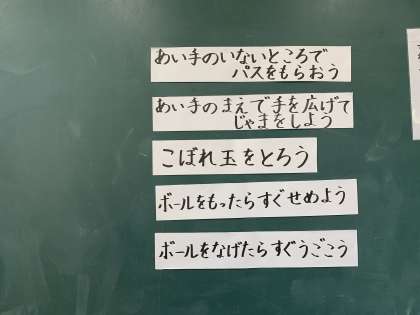 あい手のいないところで
パスをもらおう
あい手のまえで手を広げて
じゃまをしよう
こぼれ玉をとろう
ボールをもったらすぐせめよう
ボールをなげたらすぐうごこう